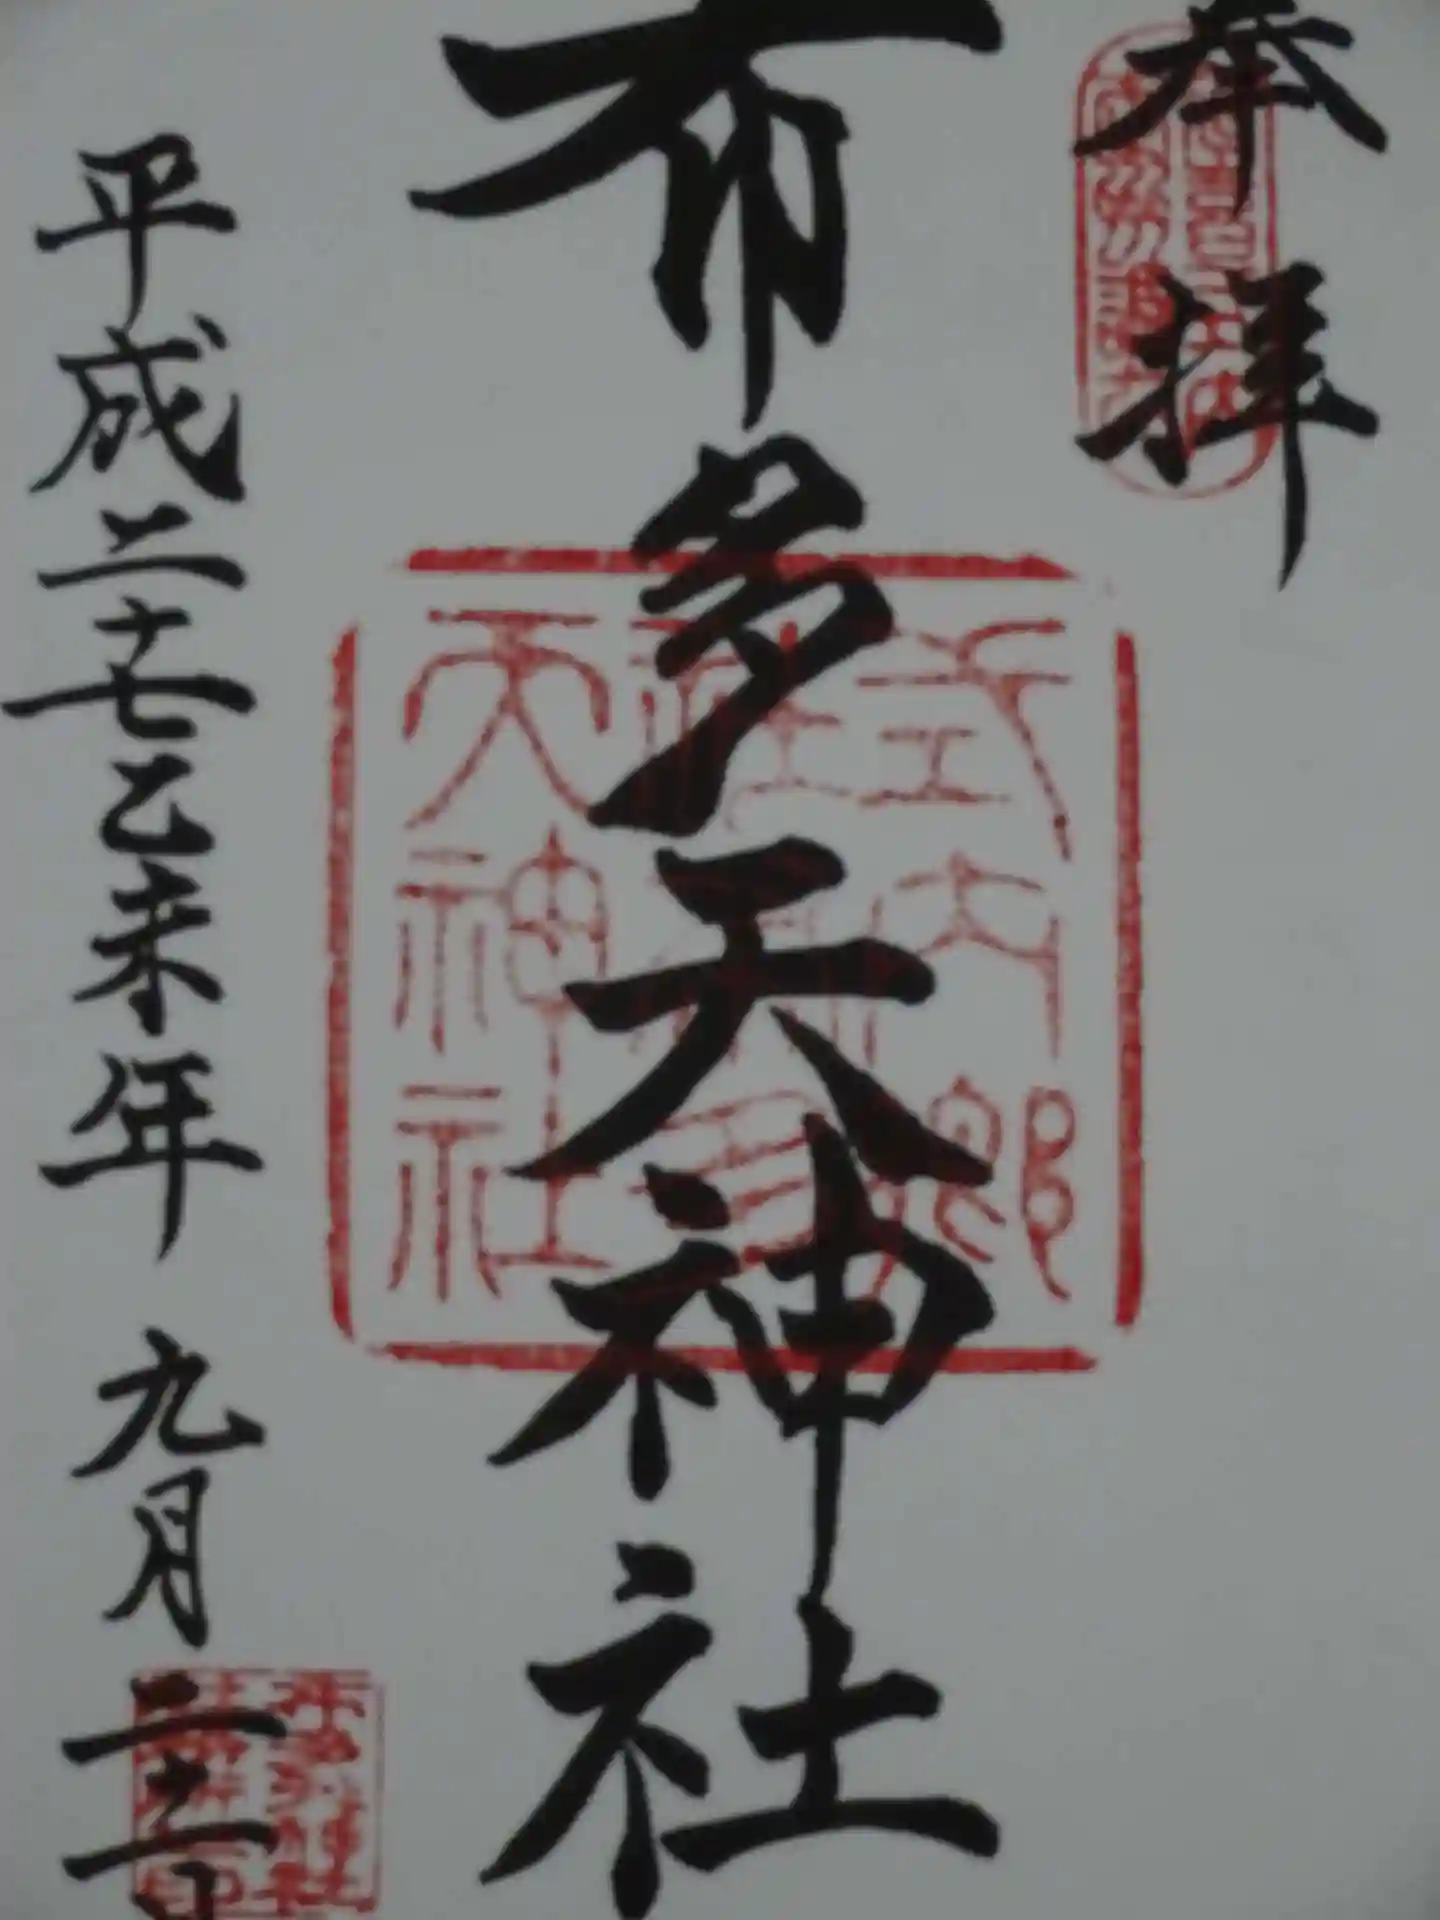 奉拝
布多天神社
式内郷
社布多
天神社
平成二十七乙未年 九月二